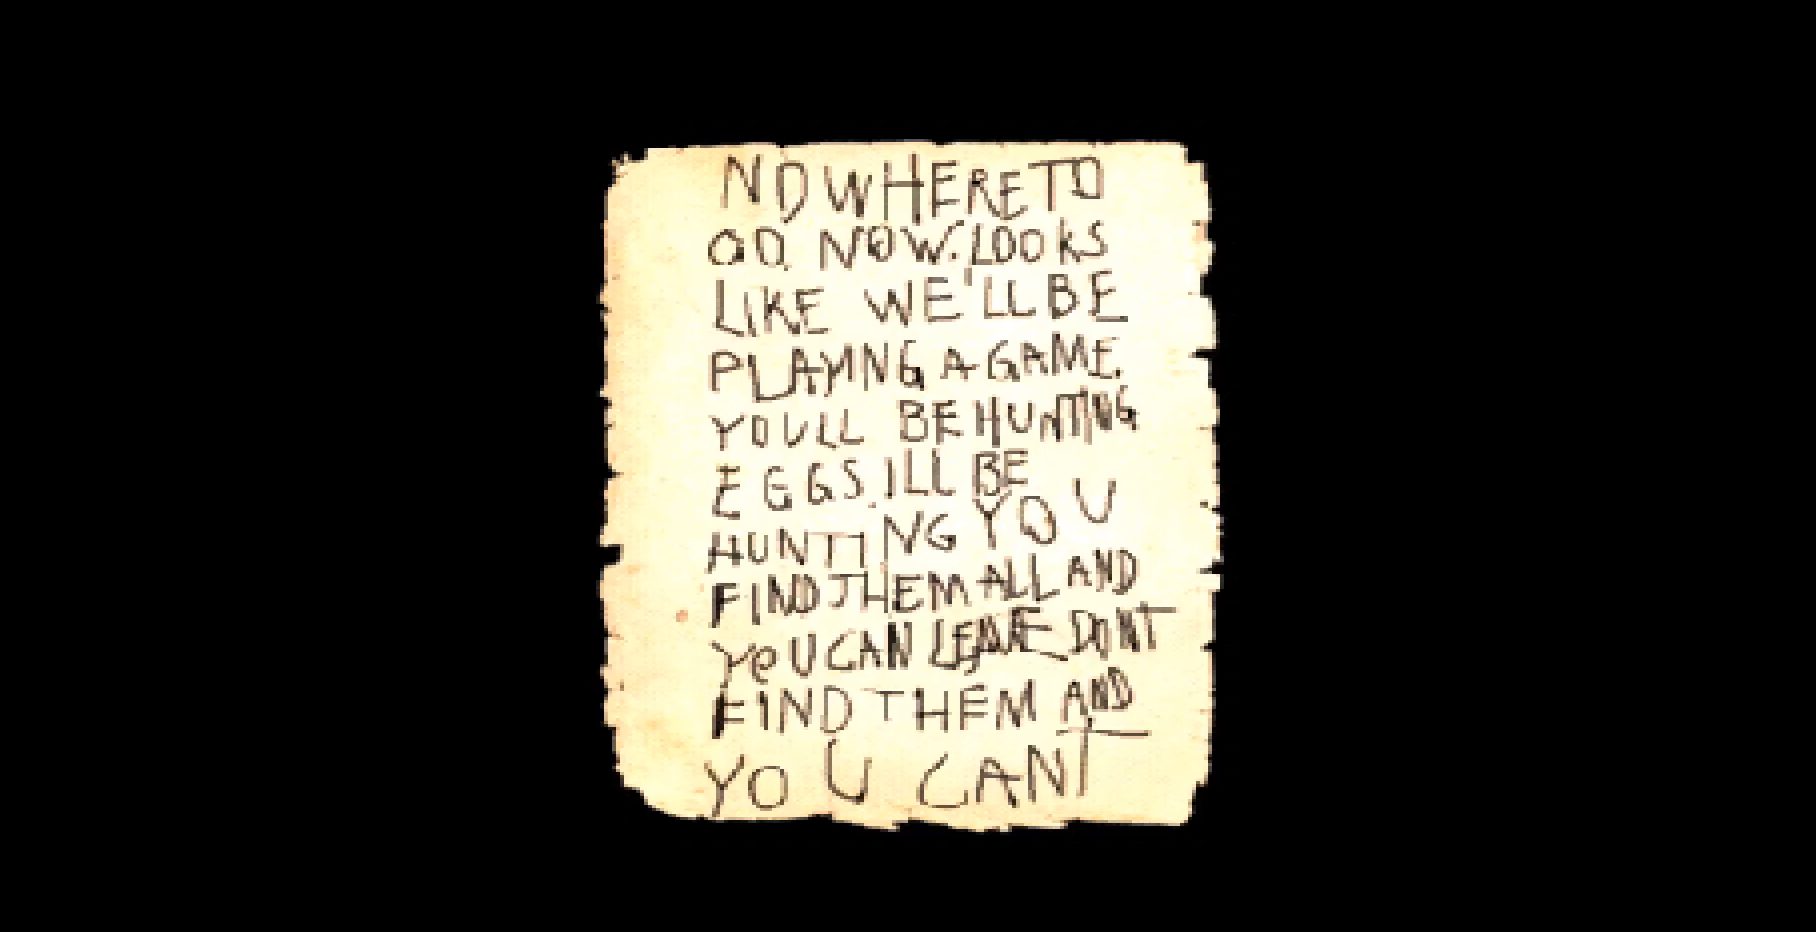 NOWHERE TO
GO NOW. LOOKS
LIKE WE'LL BE
PLAYING A GAME.
YOULL BE HUNTING
EGGS. ILL BE
HUNTING YOU
FIND THEM ALL AND
YOU CAN LEAVE DONT
FIND THEM AND
YOU CANT